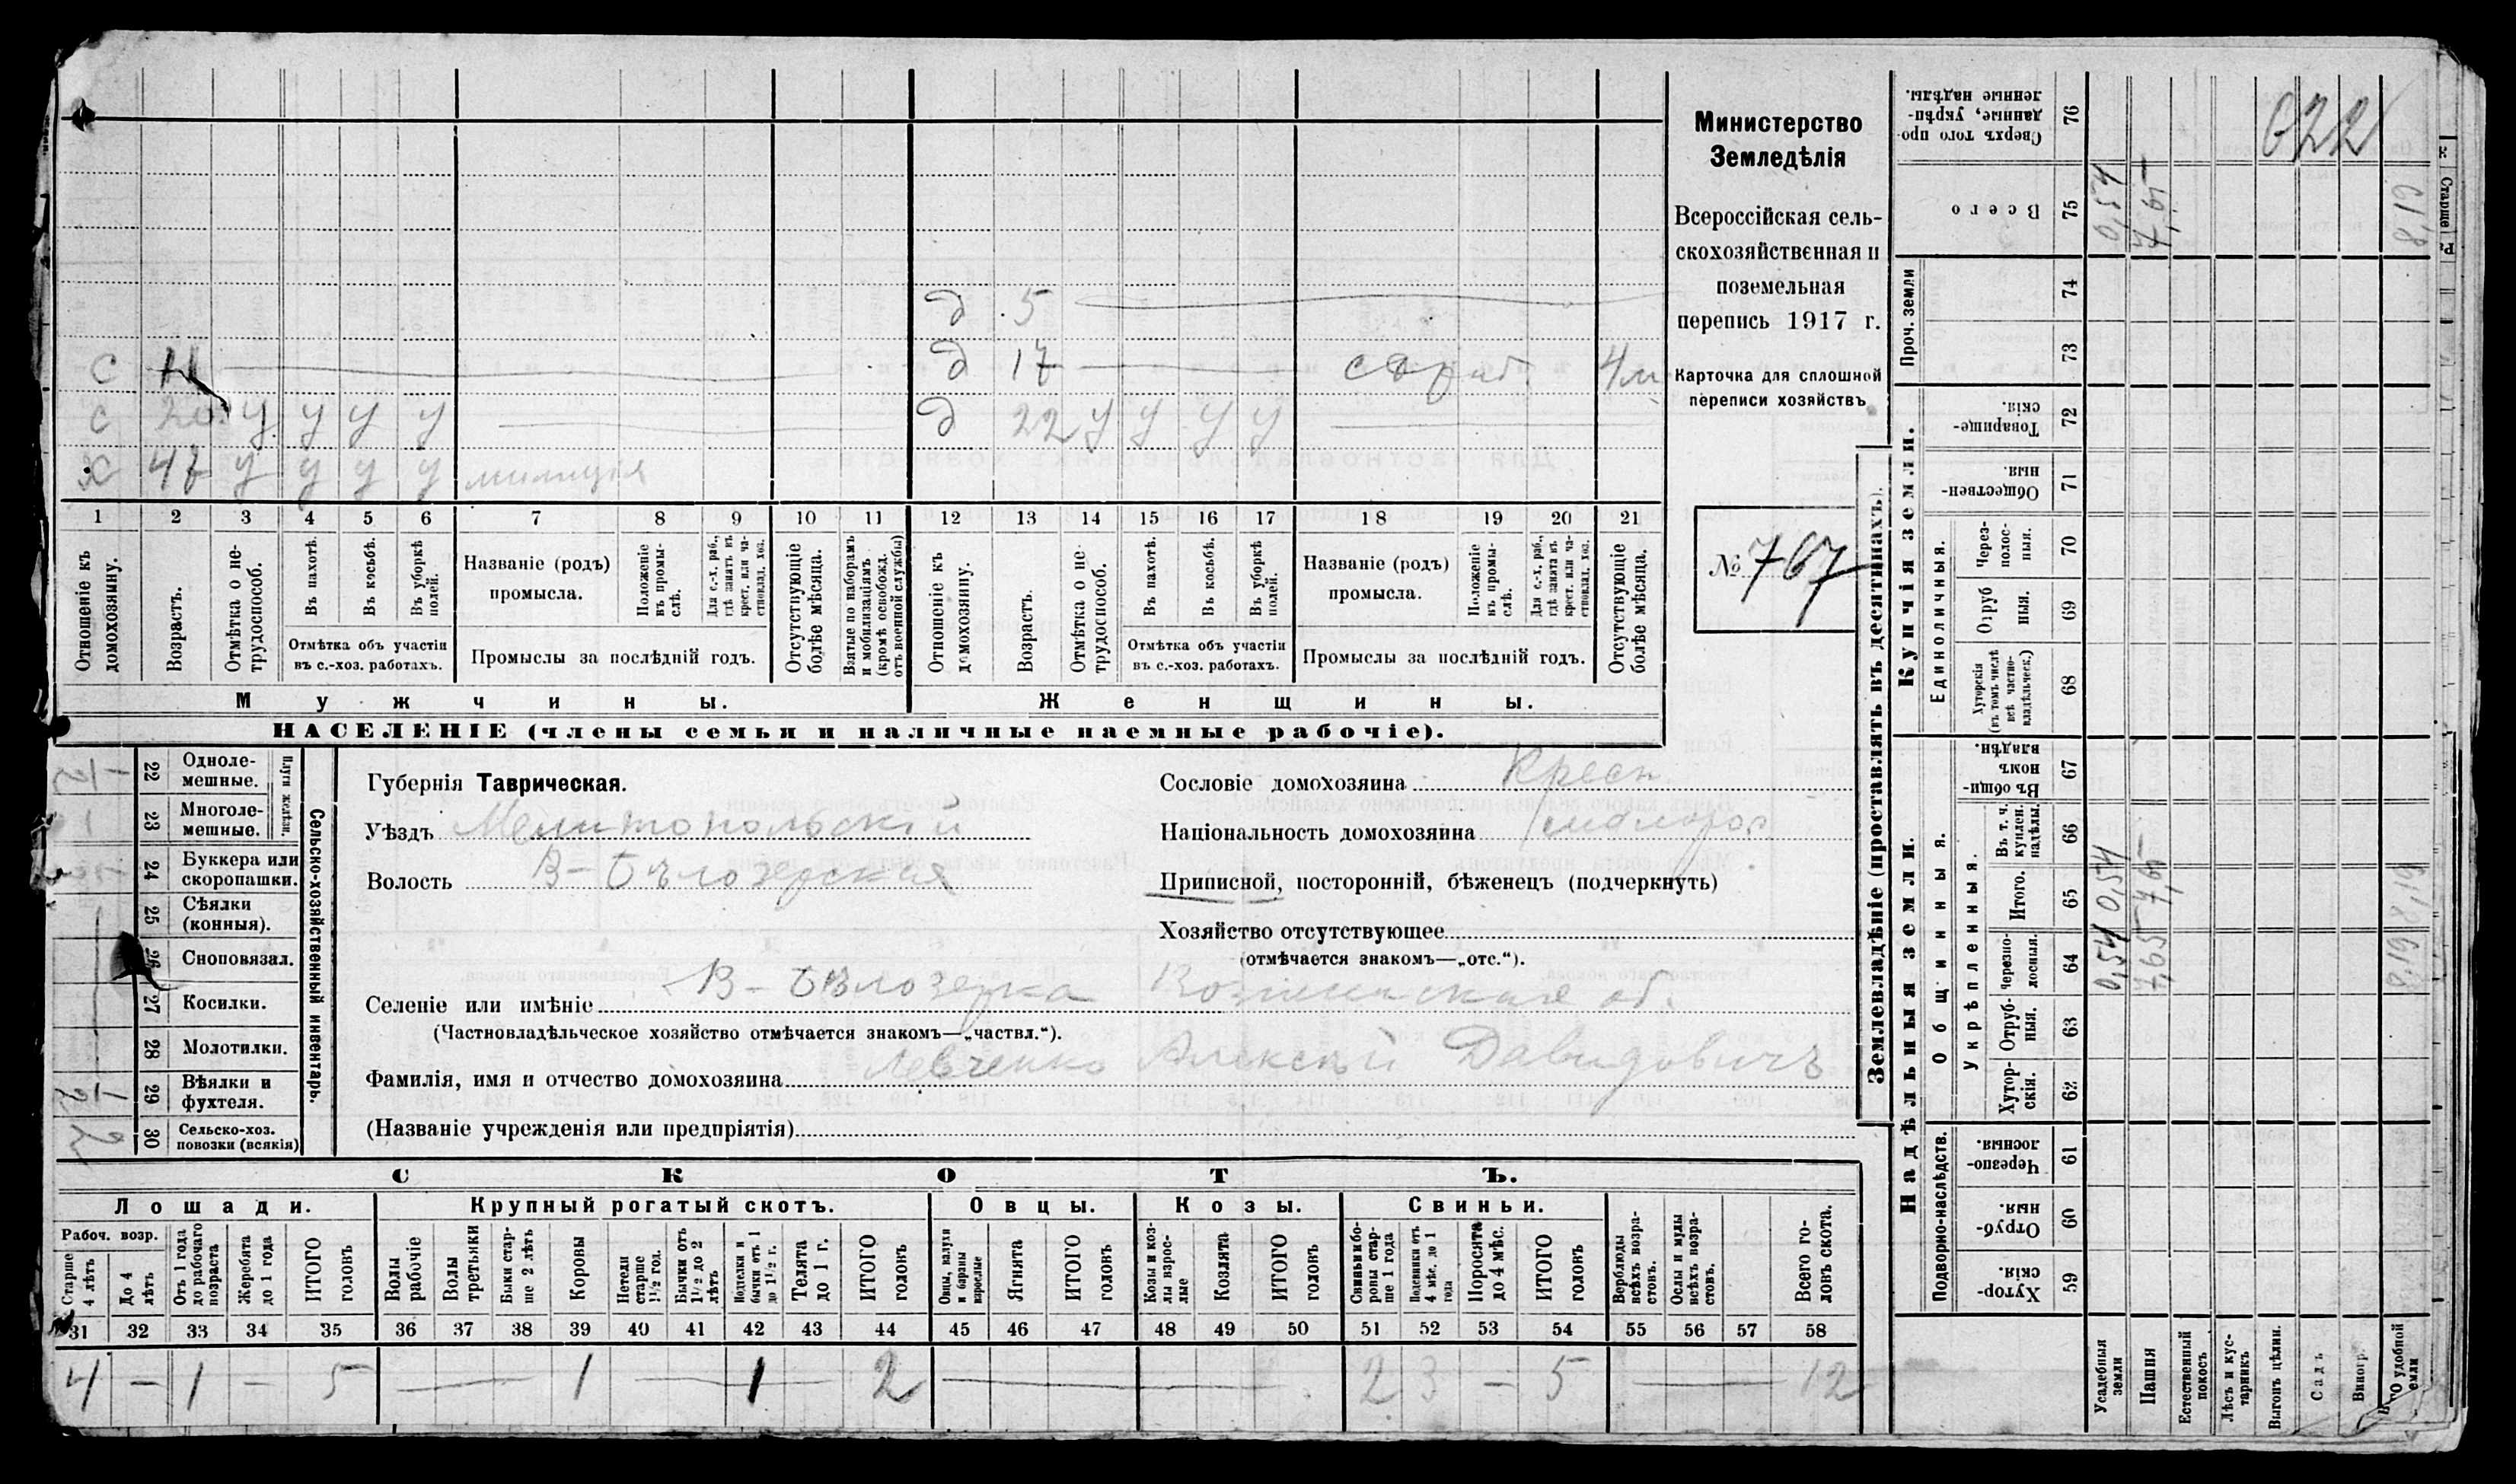 д 5
с 11 д 17 4 м
с 20 у у у у д 22 у у у у
х 47 у у у у милиція
1 2 3 4 5 6 7 8 9 10 11 12 13 14 15 16 17 18 19 20 21
Отношеніе къ домохозяину.
Возрастъ.
Отмѣтка о не-трудоспособ.
Въ пахотѣ.
Въ косьбѣ.
Въ уборкѣ полей.
Отмѣтка объ участіи
въ с.-хоз. работахъ.
Названіе (родъ)
промысла.
Положеніе въ промы-слѣ.
Для с.-х. раб., гдѣ занятъ въ крест. или ча-стновлад. хоз.
Промыслы за послѣдній годъ.
Отсутствующіе болѣе мѣсяца.
Взятые по наборамъ и мобилизаціямъ (кромѣ освобожд. отъ военной службы)
Отношеніе къ домохозяину.
Возрастъ.
Отмѣтка о не-трудоспособ.
Въ пахотѣ.
Въ косьбѣ.
Въ уборкѣ полей.
Отмѣтка объ участіи
въ с.-хоз. работахъ.
Названіе (родъ)
промысла.
Положеніе въ промы-слѣ.
Для с.-х. раб., гдѣ занята въ крест. или ча-стновлад. хоз.
Промыслы за послѣдній годъ.
Отсутствующіе болѣе мѣсяца.
Мужчины. Женщины.
НАСЕЛЕНІЕ (члены семьи и наличные наемные рабочіе).
Министерство
Земледѣлія
Всероссійская сель-
скохозяйственная и
поземельная
перепись 1917 г.
Карточка для сплошной
переписи хозяйствъ
№ 767
22 Однолемешные.
23 Многолемешные.
Плуги желѣзн.
24 Буккера или скоропашки.
25 Сѣялки (конныя).
26 Сноповязал.
27 Косилки.
28 Молотилки.
29 Вѣялки и фухтеля.
30 Сельско-хоз. повозки (всякія)
Сельско-хозяйственный инвентарь.
Губернія Таврическая.
Уѣздъ Мелитопольскій
Волость В-Бѣлозерская
Сословіе домохозяина Кресн.
Національность домохозяина малорос
Приписной, посторонній, бѣженецъ (подчеркнуть)
Хозяйство отсутствующее
(отмѣчается знакомъ—„отс.“).
Селеніе или имѣніе В-Бѣлозерка об.
(Частновладѣльческое хозяйство отмѣчается знакомъ—„частвл.“).
Фамилія, имя и отчество домохозяина Левченко Алексѣй Давидовичъ
(Названіе учрежденія или предпріятія)
СКОТЪ.
Лошади. Крупный рогатый скотъ. Овцы. Козы. Свиньи.
Рабоч. возр.
Старше 4 лѣтъ
До 4 лѣтъ
Отъ 1 года до рабочаго возраста
Жеребята до 1 года
ИТОГО головъ
Волы рабочіе
Волы третьяки
Быки стар-ше 2 лѣтъ
Коровы
Нетели старше 1½ год.
Бычки отъ 1½ до 2 лѣтъ
Подтелки и бычки отъ 1 до 1½ г.
Телята до 1 г.
ИТОГО головъ
Овцы, валухи и бараны взрослые
Ягнята
ИТОГО головъ
Козы и коз-лы взрос-лые
Козлята
ИТОГО головъ
Свиньи бо-ровы стар-ше 1 года
Подсвинки отъ 4 мѣс. до 1 года
Поросята до 4 мѣс.
ИТОГО головъ
Верблюды всѣхъ возра-стовъ.
Ослы и мулы всѣхъ возра-стовъ.
Всего го-ловъ скота.
31 32 33 34 35 36 37 38 39 40 41 42 43 44 45 46 47 48 49 50 51 52 53 54 55 56 57 58
4 — 1 - 5 — 1 — 1 2 — 2 3 — 5 — 12
Землевладѣніе (проставлять въ десятинахъ).
Купчія земли.
Надѣльныя земли.
Сверхъ того про-данные, укрѣп-ленные надѣлы. 76
Всего 75 0,54 7,65 8,19
Проч. земли 74 73
Товарище-скія. 72
Обществен-ныя. 71
Единоличныя.
Через-полос-ныя. 70
Отруб ныя. 69
Хуторскія (въ томъ числѣ всѣ частно-владѣльческ.) 68
Общинныя.
Въ общи-номъ владѣн. 67
Укрѣпленныя.
Въ т. ч. куплен. надѣлы 66
Итого. 65 0,54 7,65 8,19
черезпо-лосныя. 64 0,54 7,65 8,19
Отруб-ныя. 63
Хутор-скія. 62
Подворно-наслѣдств.
Черезпо-лосныя. 61
Отруб-ныя. 60
Хутор-скія. 59
Усадебныя земли
Пашня
Естественный покосъ
Лѣсъ и кус-тарникъ
Выгонъ цѣлин.
Садъ
Виногр.
удобной земли
022
Старше